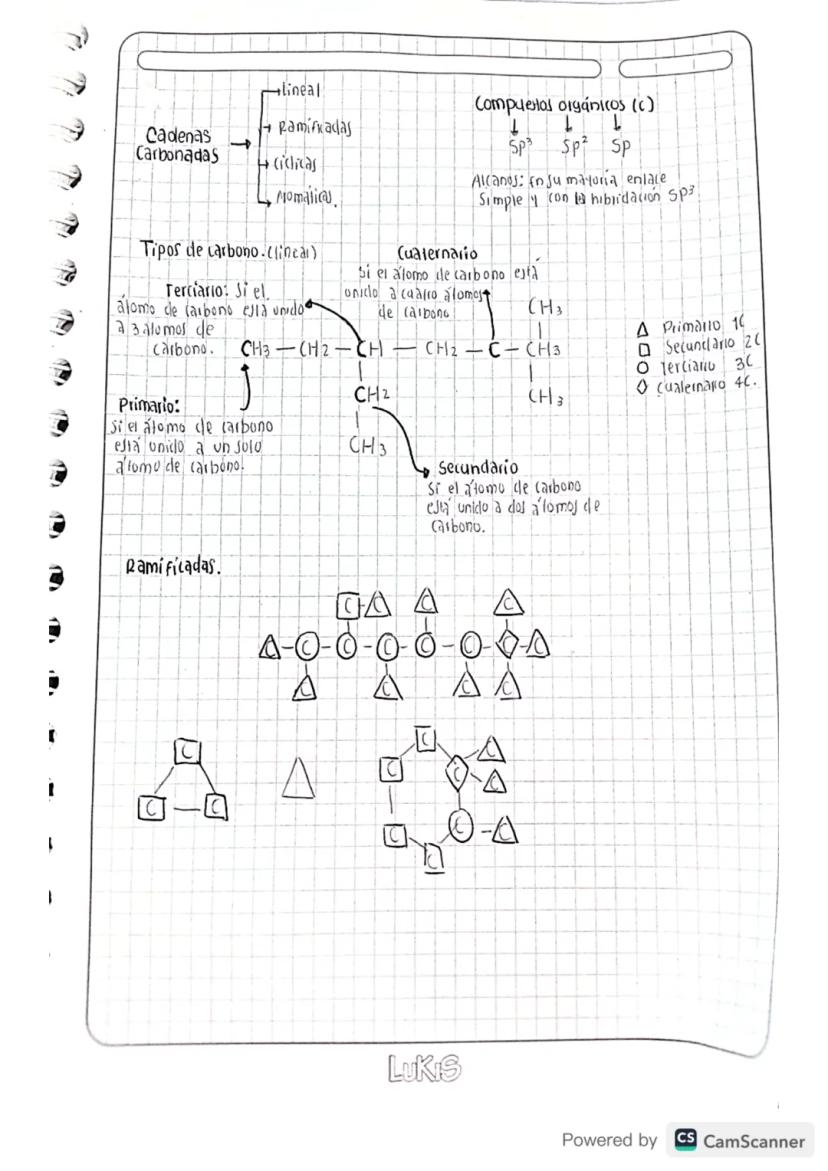 Cadenas
Carbonadas
lineal
Ramificadas
Cíclicas
Aromáticas.
Compuestos orgánicos (c)
Sp³ Sp² Sp
Alcanos: En su mayoría enlace
Simple y con la hibridación Sp³
Tipos de carbono. (lineal)
Terciario: Si el
átomo de carbono está unido
a 3 átomos de
carbono.
Cuaternario
Si el átomo de carbono está
unido a cuatro átomos
de carbono
CH3
CH3 — CH2 — CH — CH2 — C — CH3
CH2
CH3
CH3
Primario:
Si el átomo de carbono
está unido a un solo
átomo de carbono.
Secundario
Si el átomo de carbono
está unido a dos átomos de
carbono.
△ Primario 1C
□ Secundario 2C
○ Terciario 3C
◇ Cuaternario 4C.
Ramificadas.
C-C C C
C-C-C-C-C-C-C-C
C C C C
C
C — C
C
C C C
C
C C-C
C
LUKIS
Powered by CS CamScanner